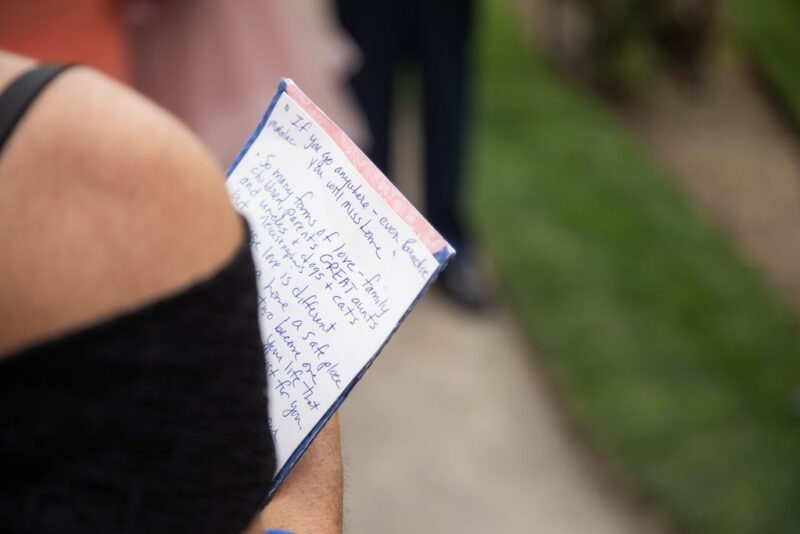 " If you go anywhere - even Paradise
you will miss home "
So many forms of love - family
children, parents GREAT aunts
and uncles + dogs + cats
love is different
home a safe place
two become one
your life that
for you.